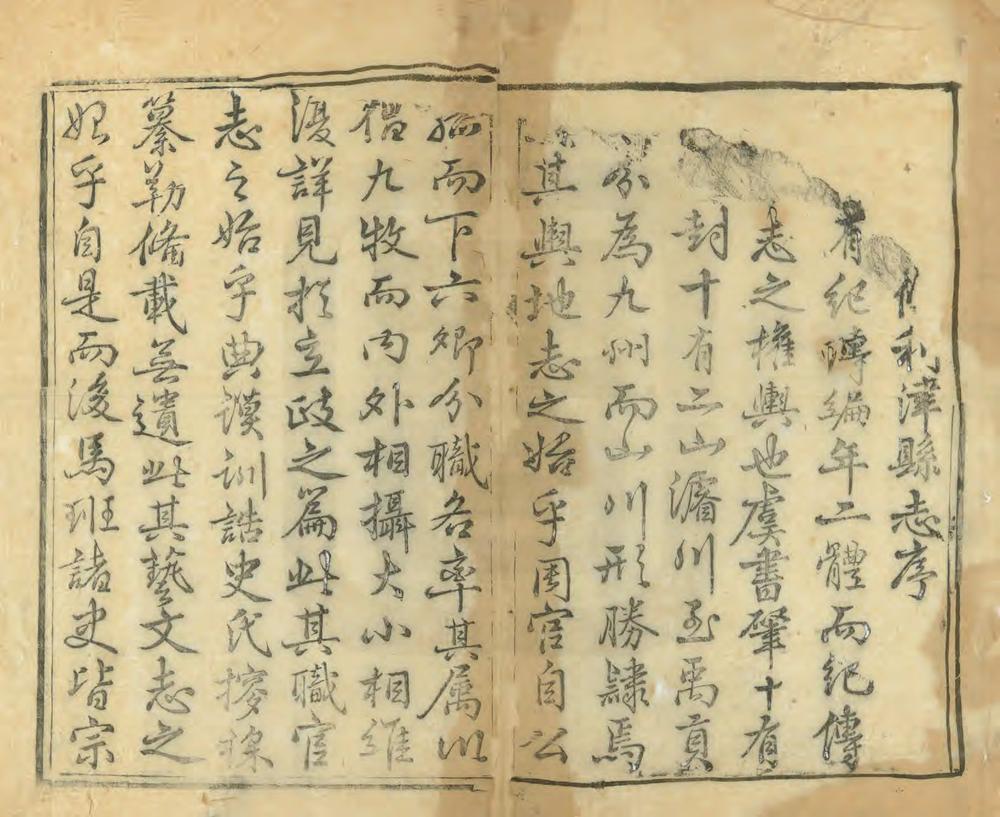 利津縣志序
有紀轉編年二體而紀傳
志之權輿也虞書肇十有
封十有二山濬川至禹貢
分為九州而山川形勝隸焉
其輿地志之始乎周官自公
孤而下六卿分職各率其属以
猶九牧而内外相攝大小相維
復詳見於立政之篇此其職官
志之始乎典謨訓誥史氏採
纂勒備載無遺此其藝文志之
始乎自是而後馬班諸史皆宗